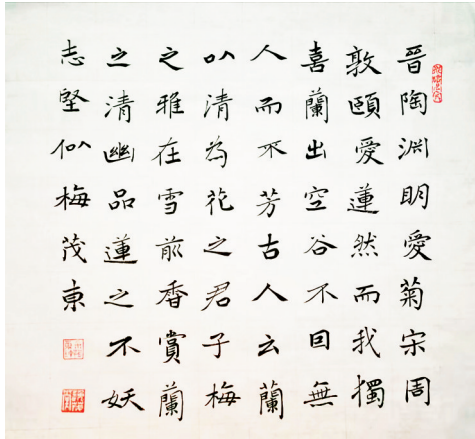 晉陶淵明愛菊宋周
敦頤愛蓮然而我獨
喜蘭出空谷不回無
人而不芳古人云蘭
以清為花之君子梅
之雅在雪前香賞蘭
之清幽品蓮之不妖
志堅似梅茂東